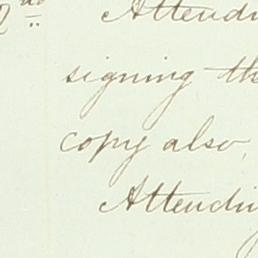 Attendi
signing the
copy also,
Attendin